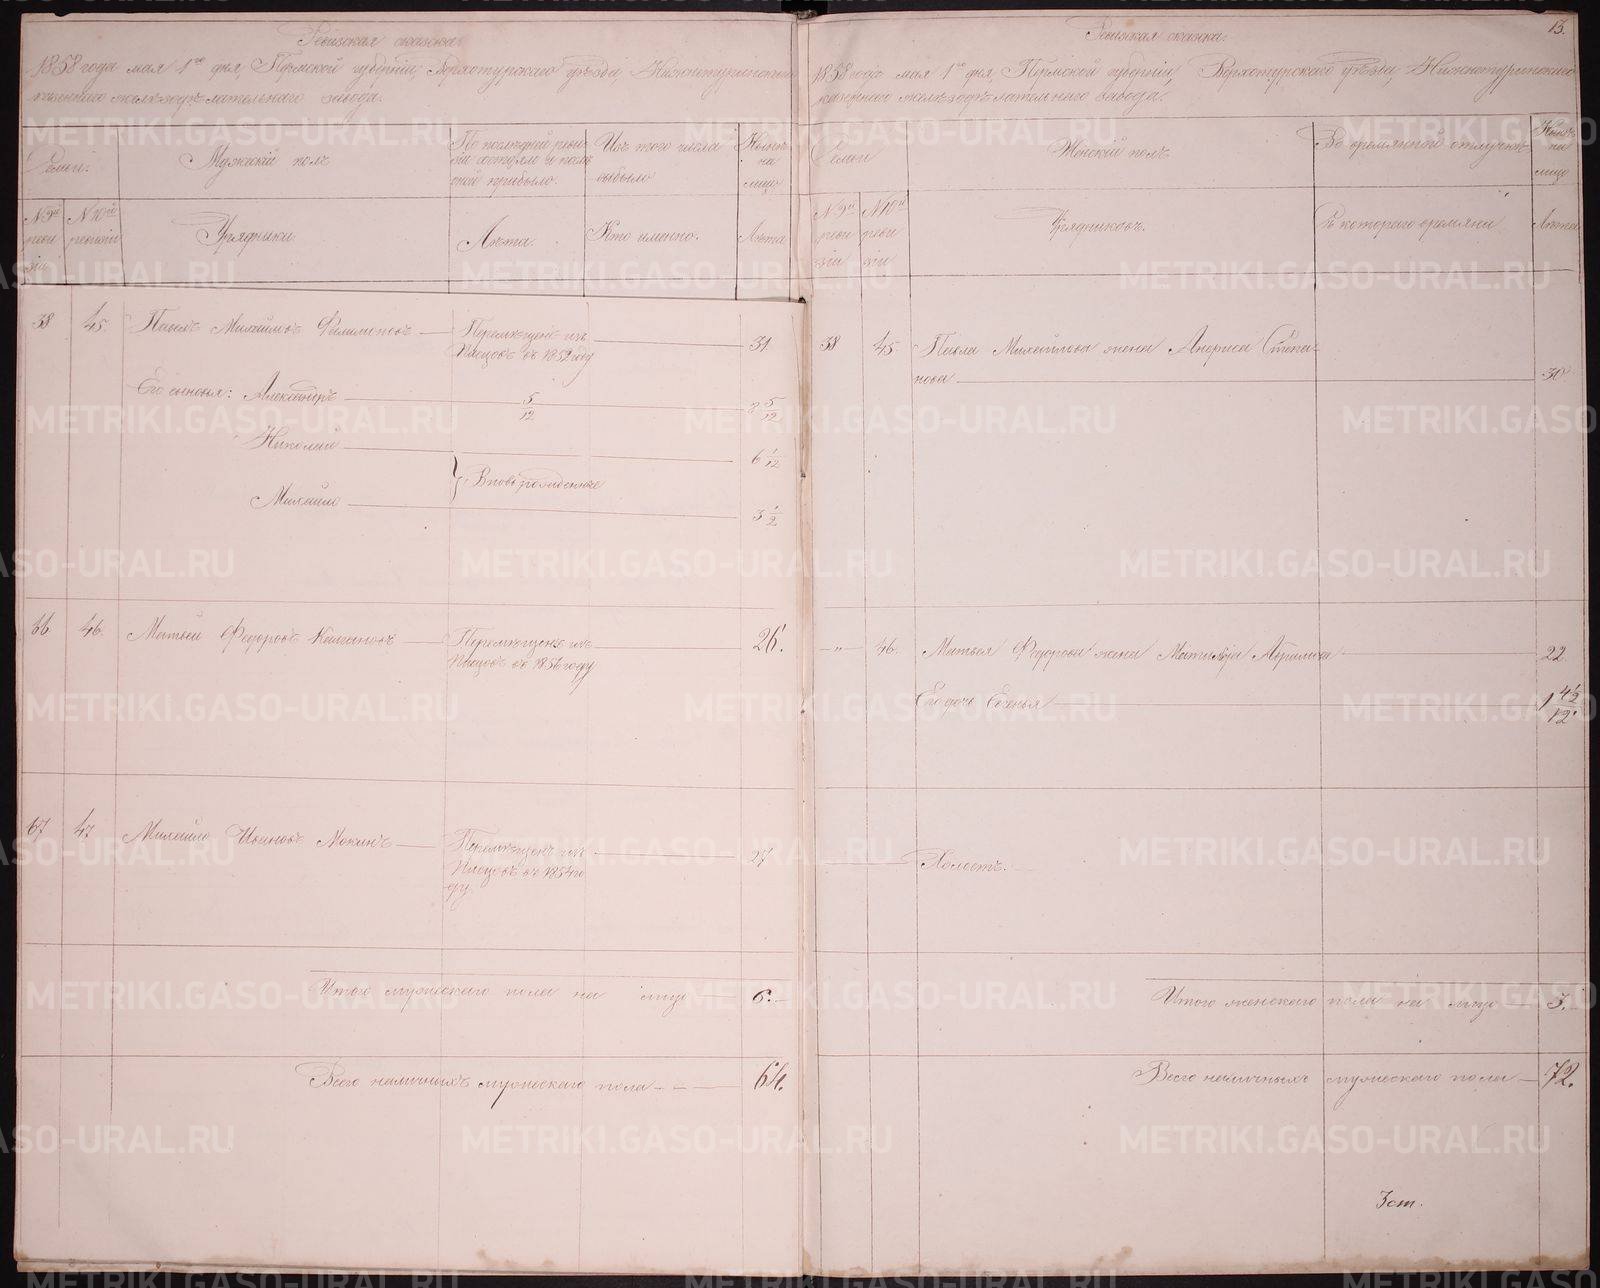 Ревизская сказка.
1858 года мая 1го дня, Пермской губернiи, Верхотурскаго уѣзда, Нижнетуринскаго
казеннаго желѣзодѣлательнаго завода.
Семьи.
Мужескiй полъ
По послѣдней реви-
зiи состояло и послѣ
оной прибыло.
Изъ того числа
выбыло
Нынѣ
на
лицо
№ 9й
реви
зiи
№ 10й
ревизiи
Урядники.
Лѣта.
Кто именно.
Лѣта
38
45.
Павелъ Михайловъ
Перемѣщенъ изъ
Писцовъ въ 1852 году
31
Его сыновья: Александръ
5/12
8 5/12
Николай
6 1/12
Вновь рожденные
Михайло
3 1/2
66
46.
Матвей Федоровъ
Перемѣщенъ изъ
Писцовъ въ 1856 году
26.
67
47
Михайло Ивановъ Мокинъ
Перемѣщенъ изъ
Писцовъ въ 1854 го
ду.
27
Итого мужескаго пола на лицо
6.
Всего наличныхъ мужескаго пола
64.
13.
Ревизская сказка.
1858 года мая 1го дня, Пермской губернiи, Верхотурскаго уѣзда, Нижнетуринскаго
казеннаго желѣзодѣлательнаго завода.
Семьи
Женскiй полъ
Во временной отлучкѣ
Нынѣ
на
лицо
№ 9й
реви
зiи
№ 10й
реви
зiи
Урядниковъ.
Съ котораго времяни
Лѣта
38
45.
Павла Михайлова жена Анфиса Степа-
нова
30
"
46.
Матвея Федорова жена Матильда Абрамова
22.
Его дочь Евгенья
1 4 1/2/12.
Холостъ.
Итого женскаго пола на лицо
3.
Всего наличныхъ мужескаго пола
72.
3 ст.
METRIKI.GASO-URAL.RU